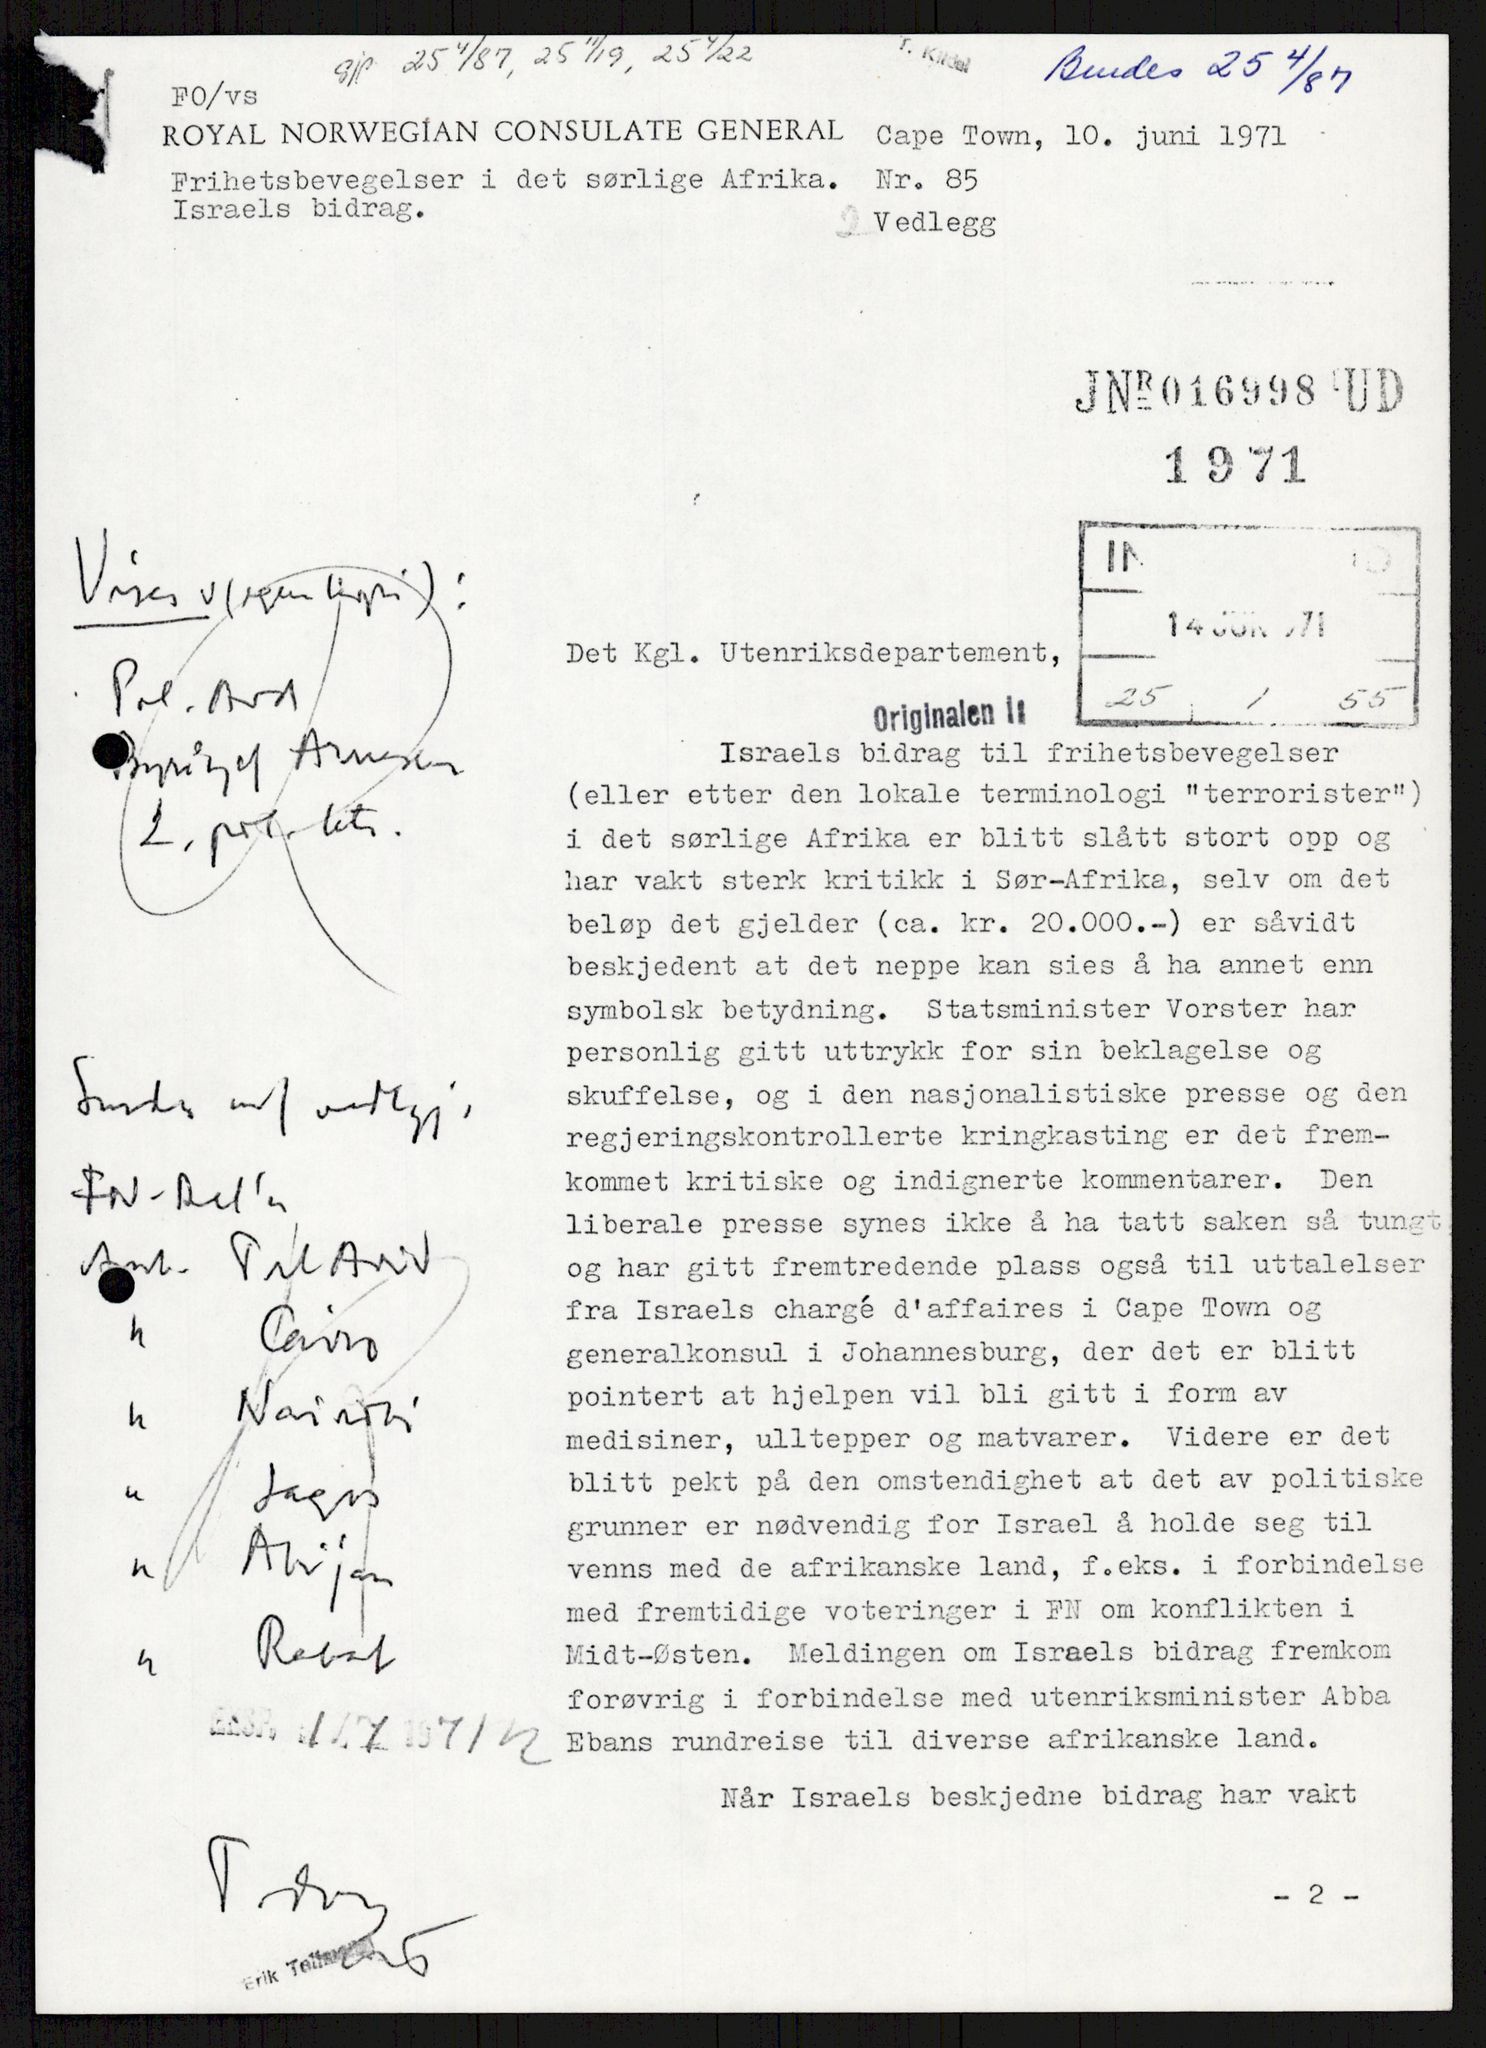 gjp. 25 4/87, 25 11/19, 25 4/22
T. Kildal
Bundes 25 4/87
FO/vs
ROYAL NORWEGIAN CONSULATE GENERAL
Cape Town, 10. juni 1971
Frihetsbevegelser i det sørlige Afrika. Nr. 85
Israels bidrag.
2 Vedlegg
JNR 016998 UD
1971
14 JUN 1971
25 1 55
Vises
Pol. Avd
Arnesen
2. pol. ktr.
Det Kgl. Utenriksdepartement,
Originalen il
Israels bidrag til frihetsbevegelser
(eller etter den lokale terminologi "terrorister")
i det sørlige Afrika er blitt slått stort opp og
har vakt sterk kritikk i Sør-Afrika, selv om det
beløp det gjelder (ca. kr. 20.000.-) er såvidt
beskjedent at det neppe kan sies å ha annet enn
symbolsk betydning. Statsminister Vorster har
personlig gitt uttrykk for sin beklagelse og
skuffelse, og i den nasjonalistiske presse og den
regjeringskontrollerte kringkasting er det frem-
kommet kritiske og indignerte kommentarer. Den
liberale presse synes ikke å ha tatt saken så tungt
og har gitt fremtredende plass også til uttalelser
fra Israels chargé d'affaires i Cape Town og
generalkonsul i Johannesburg, der det er blitt
pointert at hjelpen vil bli gitt i form av
medisiner, ulltepper og matvarer. Videre er det
blitt pekt på den omstendighet at det av politiske
grunner er nødvendig for Israel å holde seg til
venns med de afrikanske land, f.eks. i forbindelse
med fremtidige voteringer i FN om konflikten i
Midt-Østen. Meldingen om Israels bidrag fremkom
forøvrig i forbindelse med utenriksminister Abba
Ebans rundreise til diverse afrikanske land.
Når Israels beskjedne bidrag har vakt
- 2 -
Sendes m/ vedlegg:
FN-Del'n
Amb. Tel Aviv
" Cairo
" Nairobi
" Lagos
" Abijan
" Rabat
EKSP. 1/7 1971
Erik